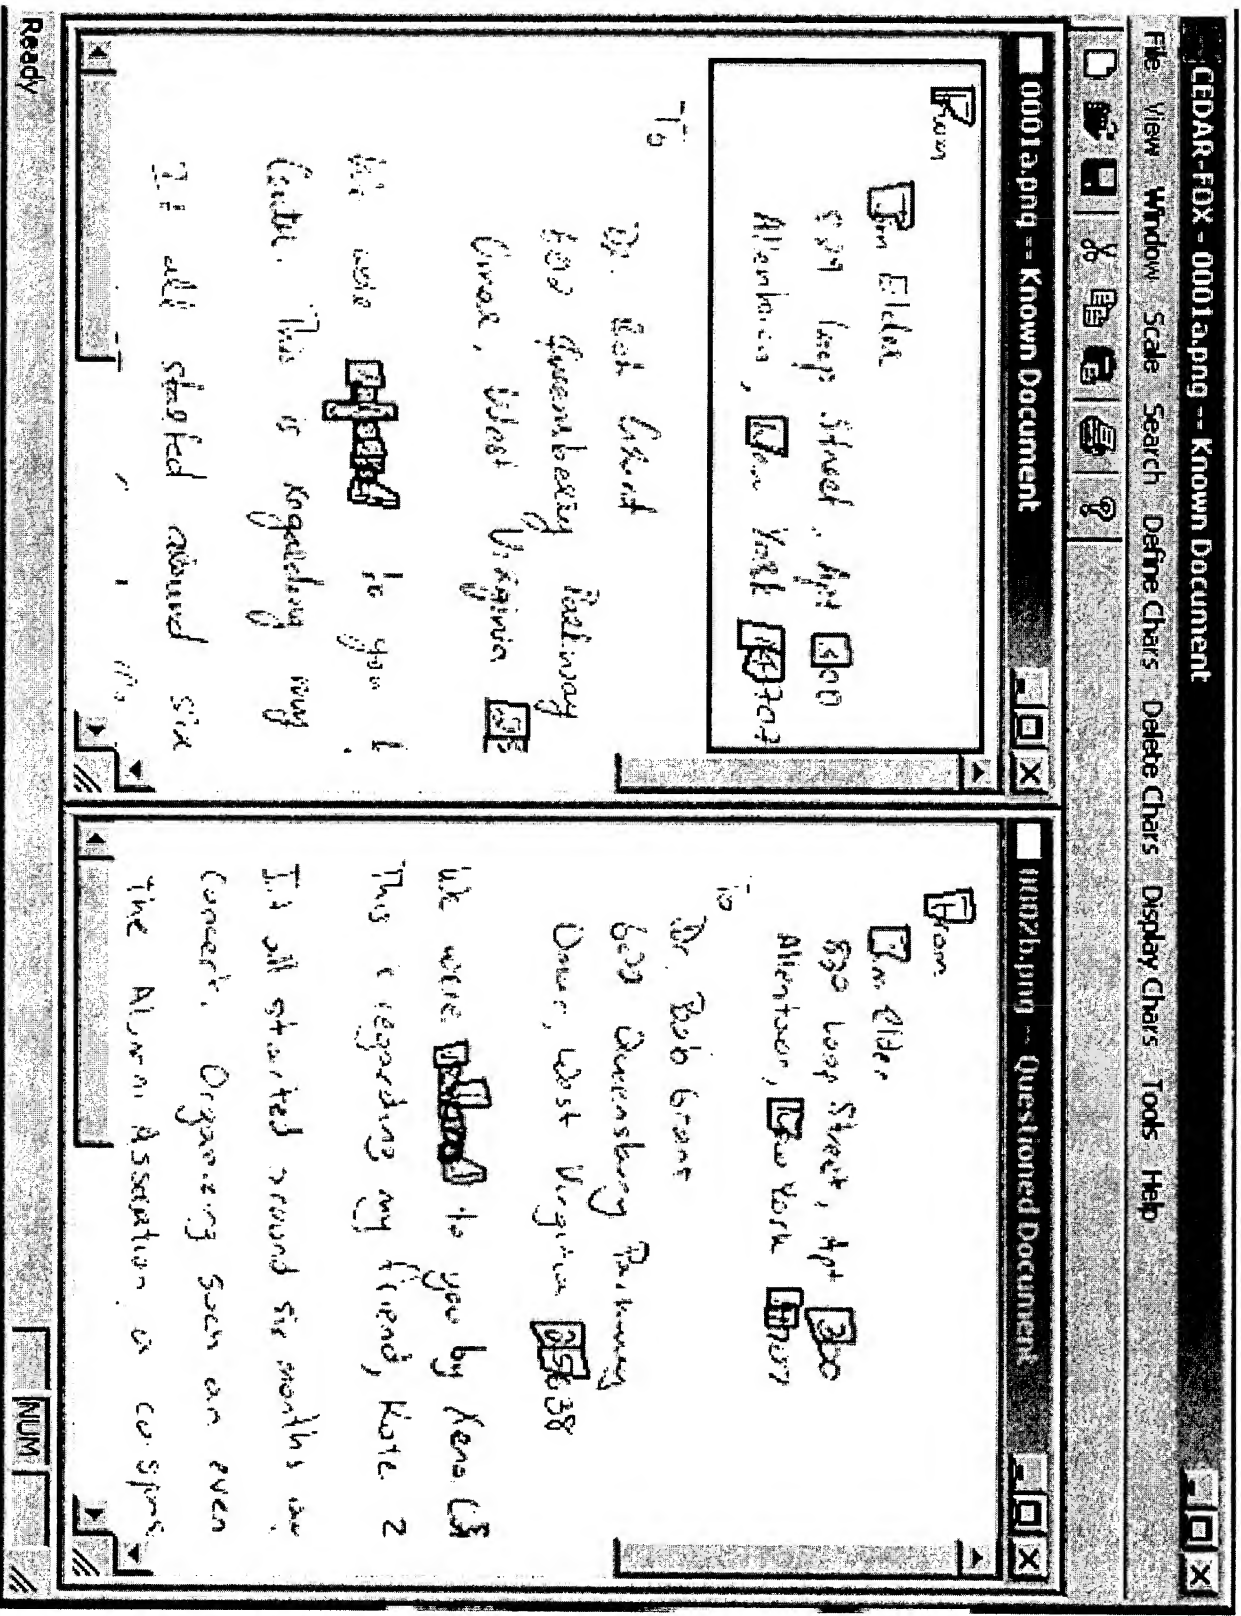 CEDAR-FOX - 0001a.png -- Known Document
File View Window Scale Search Define Chars Delete Chars Display Chars Tools Help
0001a.png -- Known Document
From
Jim Elder
829 Loop Street, Apt 300
Allentown, New York 14707
To
Dr. Bob Grant
602 Queensberry Parkway
Omar, West Virginia
We were to you
Center. This is regarding my
It all started around six
0002b.png -- Questioned Document
From
Jim Elder
829 Loop Street, Apt 300
Allentown, New York 14707
To
Dr. Bob Grant
602 Queensberry Parkway
Omar, West Virginia 25638
We were referred to you by Xena
This is regarding my friend, Kate
It all started around six months
Concert. Organizing such an even
The Alumni Association
Ready
NUM